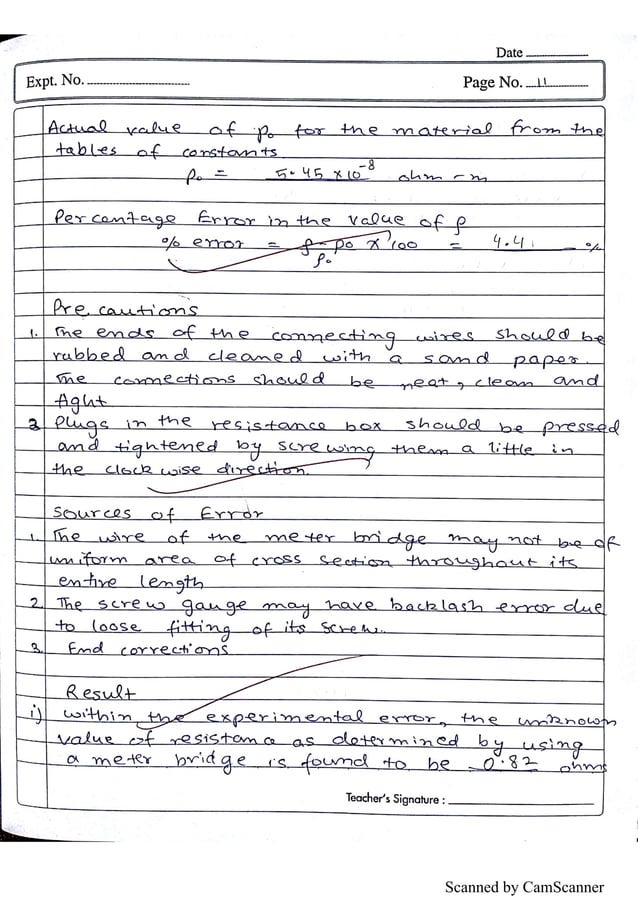 Date
Expt. No.
Page No. 11
Actual value of ρ₀ for the material from the
tables of constants
ρ₀ = 5.45 × 10⁻⁸ ohm-m
Percentage Error in the value of ρ
% error = ρ-ρ₀/ρ₀ × 100 = 4.41 %
Precautions
1. The ends of the connecting wires should be
rubbed and cleaned with a sand paper.
The connections should be neat, clean and
tight
3 Plugs in the resistance box should be pressed
and tightened by screwing them a little in
the clockwise direction.
Sources of Error
1. The wire of the meter bridge may not be of
uniform area of cross section throughout its
entire length
2. The screw gauge may have backlash error due
to loose fitting of its screw.
3. End corrections
Result
i) within the experimental error, the unknown
value of resistance as determined by using
a meter bridge is found to be 0.82 ohms
Teacher's Signature :
Scanned by CamScanner